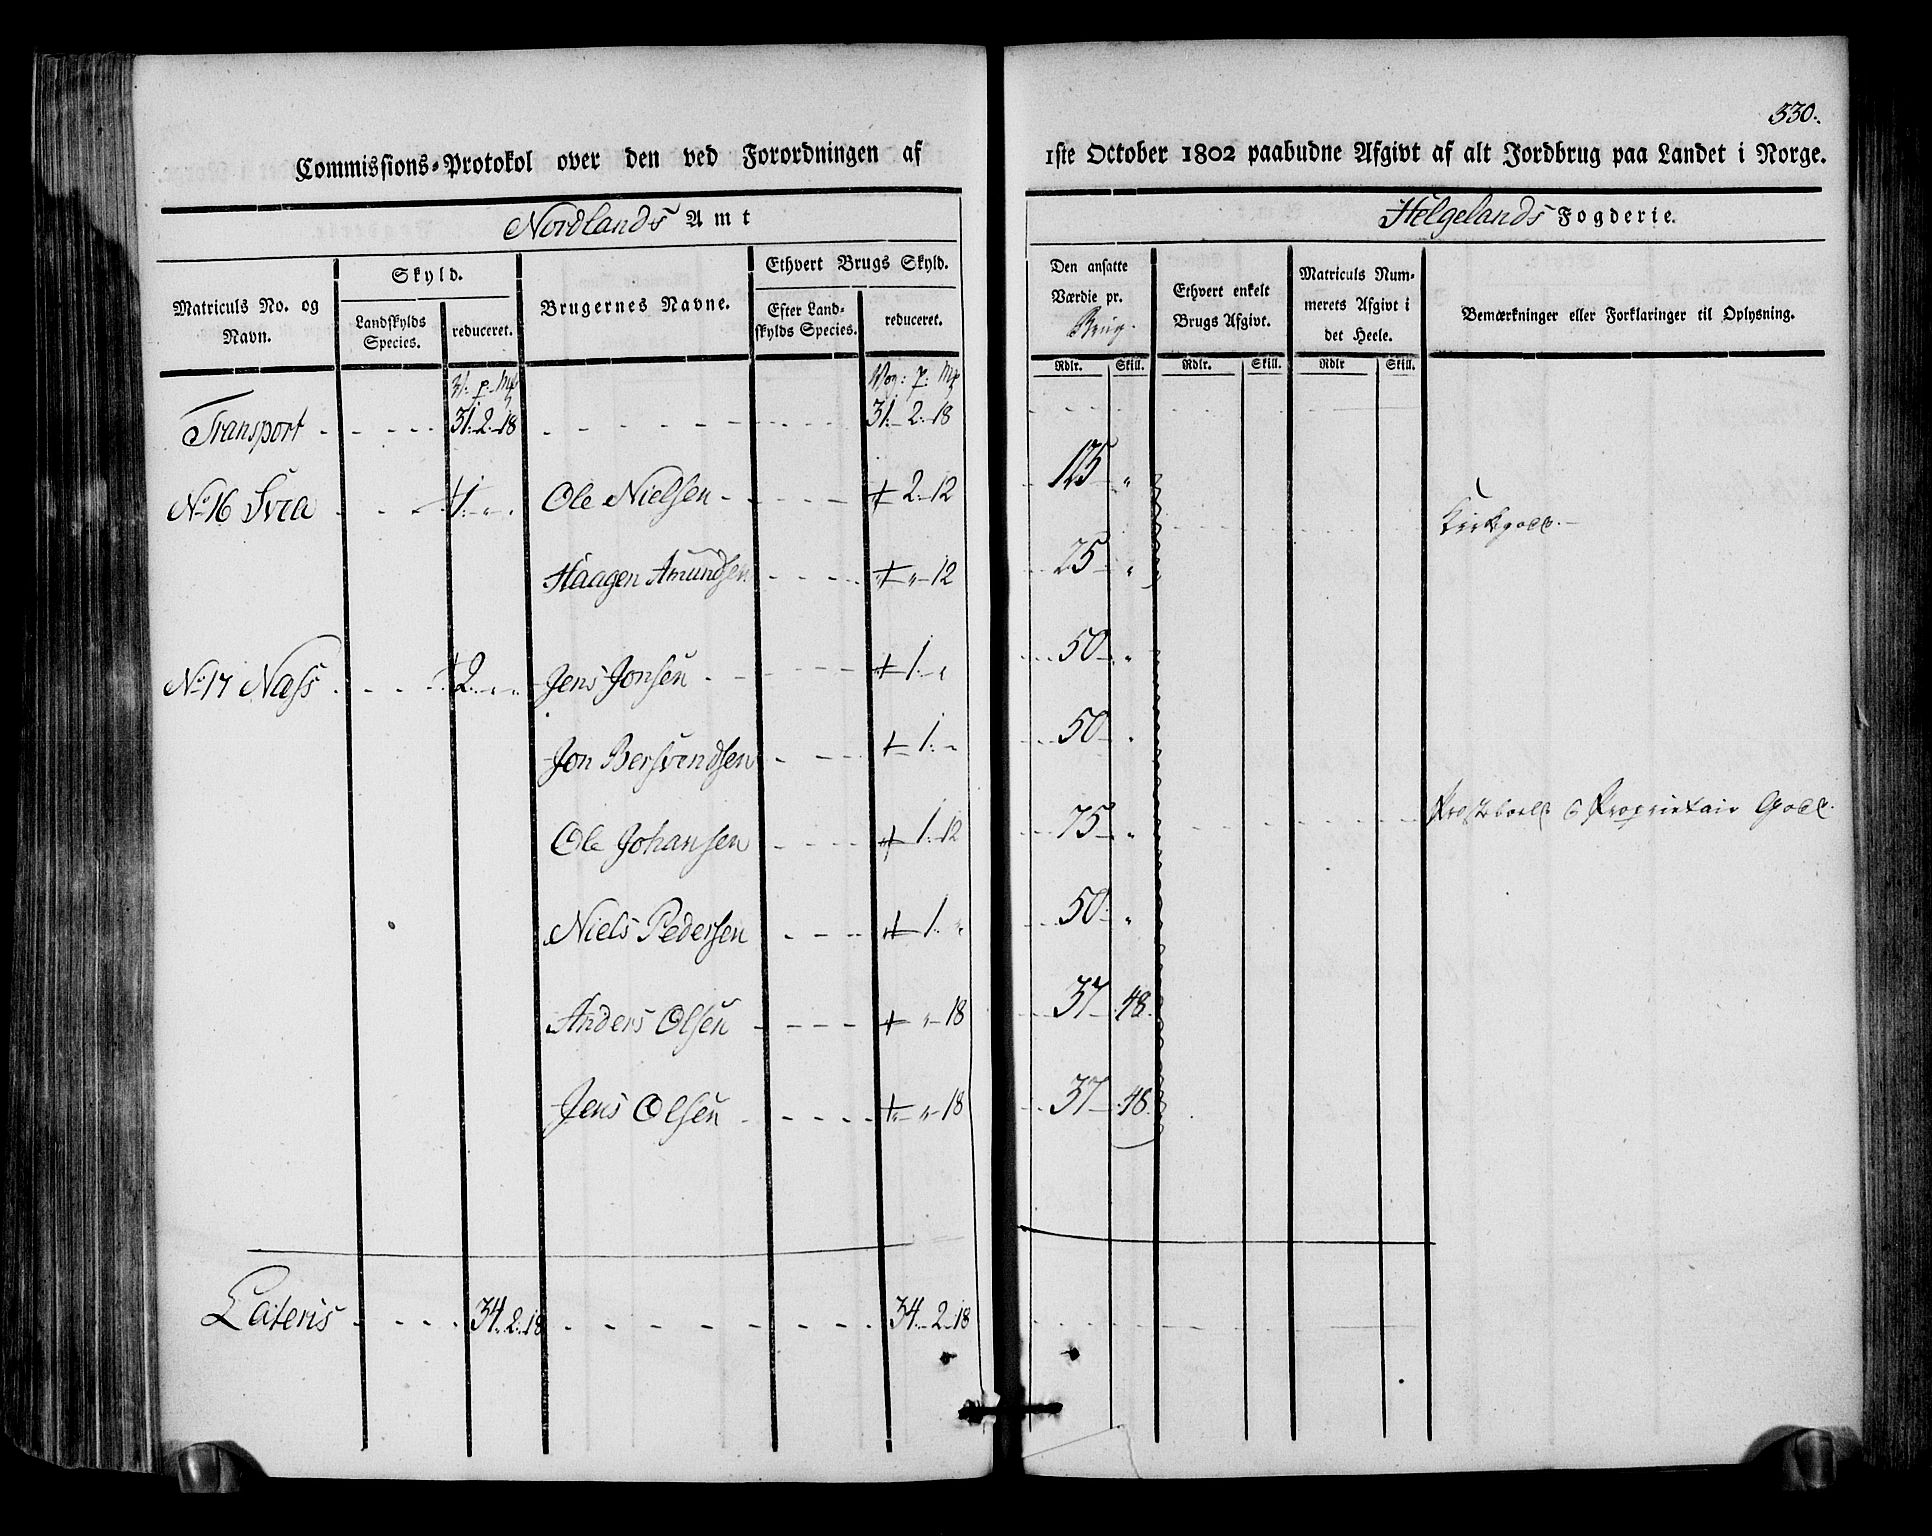 330.
Commissions-Protokol over den ved Forordningen af 1ste October 1802 paabudne Afgivt af alt Jordbrug paa Landet i Norge.
Nordlands Amt
Helgelands Fogderie.
Matriculs No. og Navn.
Skyld.
Landskylds Species.
reduceret.
Brugernes Navne.
Ethvert Brugs Skyld.
Efter Landskylds Species.
reduceret.
Den ansatte Værdie pr. Brug.
Rdlr. Skill.
Ethvert enkelt Brugs Afgivt.
Rdlr. Skill.
Matriculs Nummerets Afgivt i det Heele.
Rdlr Skill.
Bemærkninger eller Forklaringer til Oplysning.
Wog: p: Mk
Transport - - - - 31. 2. 18 - - - - - - 31. 2. 18
No 16 Svea - - - 1. " . Ole Nielsen - - - - - 2. 12 125 "
Kirkegods.
Haagen Amundsen - - - - " - 12 25 "
No 17 Næss - - - 2. " " Jens Jonsen - - - - 1. " 50 "
Jon Bersvendsen - - - - 1. " 50 "
Ole Johansen - - - - 1. 12 75 "
Præsteboels & Proprietair Gods.
Niels Pedersen - - - - 1. " 50 "
Anders Olsen - - - - " - 18 37 48.
Jens Olsen - - - - " - 18 37 48.
Lateris - - - - 34. 2. 18 - - - - - - - 34. 2. 18